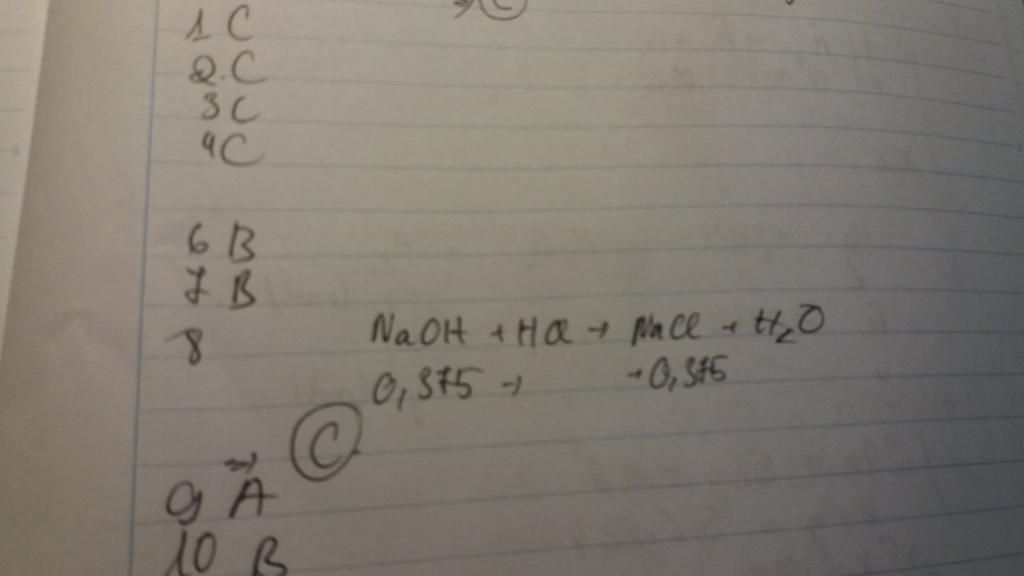 ⇒ C
1 C
2. C
3 C
4 C
6 B
7 B
8 NaOH + HCl → NaCl + H₂O
0,375 → → 0,375
⇒ C
9 A
10 B